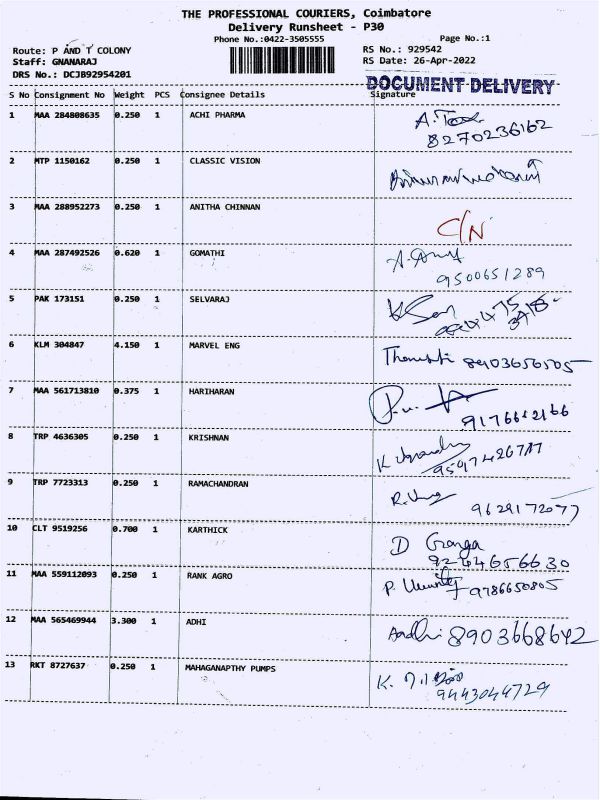 THE PROFESSIONAL COURIERS, Coimbatore
Delivery Runsheet - P30
Phone No.:0422-3505555
Page No.:1
Route: P AND T COLONY
RS No.: 929542
Staff: GNANARAJ
RS Date: 26-Apr-2022
DRS No.: DCJB92954201
DOCUMENT DELIVERY
S No Consignment No Weight PCS Consignee Details Signature
1 MAA 284808635 0.250 1 ACHI PHARMA
8270236162
2 MTP 1150162 0.250 1 CLASSIC VISION
3 MAA 288952273 0.250 1 ANITHA CHINNAN
C/N
4 MAA 287492526 0.620 1 GOMATHI
9500651289
5 PAK 173151 0.250 1 SELVARAJ
6 KLM 304847 4.150 1 MARVEL ENG
8903656505
7 MAA 561713810 0.375 1 HARIHARAN
8 TRP 4636305 0.250 1 KRISHNAN
9 TRP 7723313 0.250 1 RAMACHANDRAN
9629172077
10 CLT 9519256 0.700 1 KARTHICK
D Ganga
9244656630
11 MAA 559112093 0.250 1 RANK AGRO
9786650805
12 MAA 565469944 3.300 1 ADHI Aadhi 8903668642
13 RKT 8727637 0.250 1 MAHAGANAPTHY PUMPS
9443044729